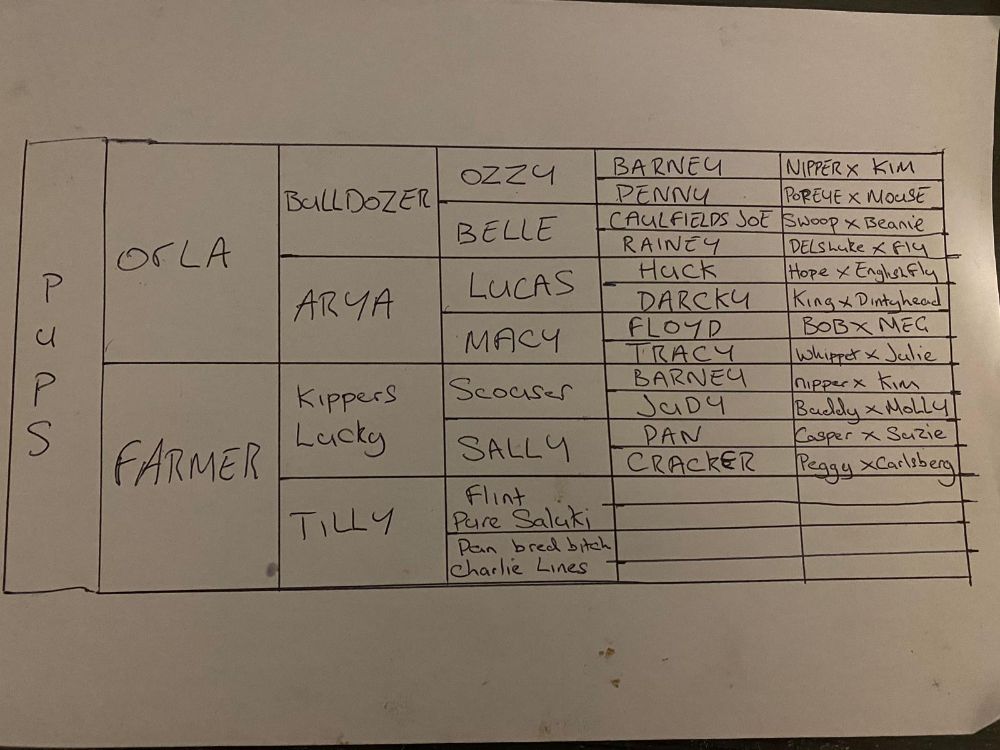 PUPS
ORLA
FARMER
BULLDOZER
ARYA
Kippers
Lucky
TILLY
OZZY
BELLE
LUCAS
MACY
Scouser
SALLY
Flint
Pure Saluki
Dan bred bitch
Charlie Lines
BARNEY
PENNY
CAULFIELDS JOE
RAINEY
HUCK
DARCKY
FLOYD
TRACY
BARNEY
JUDY
DAN
CRACKER
NIPPER x KIM
POREYE x MOUSE
Swoop x Beanie
DELSHuke x Fly
Hope x English Fly
King x Dintyhead
BOB x MEG
Whippet x Julie
nipper x Kim
Buddy x MOLLY
Casper x Suzie
Peggy x Carlsberg